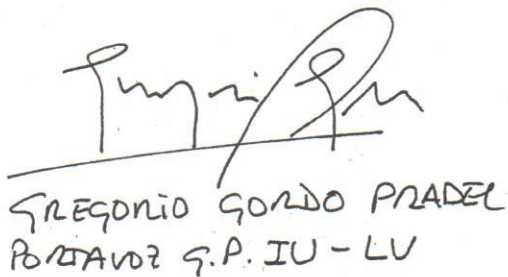 GREGORIO GORDO PRADEL
PORTAVOZ G.P. IU - LV